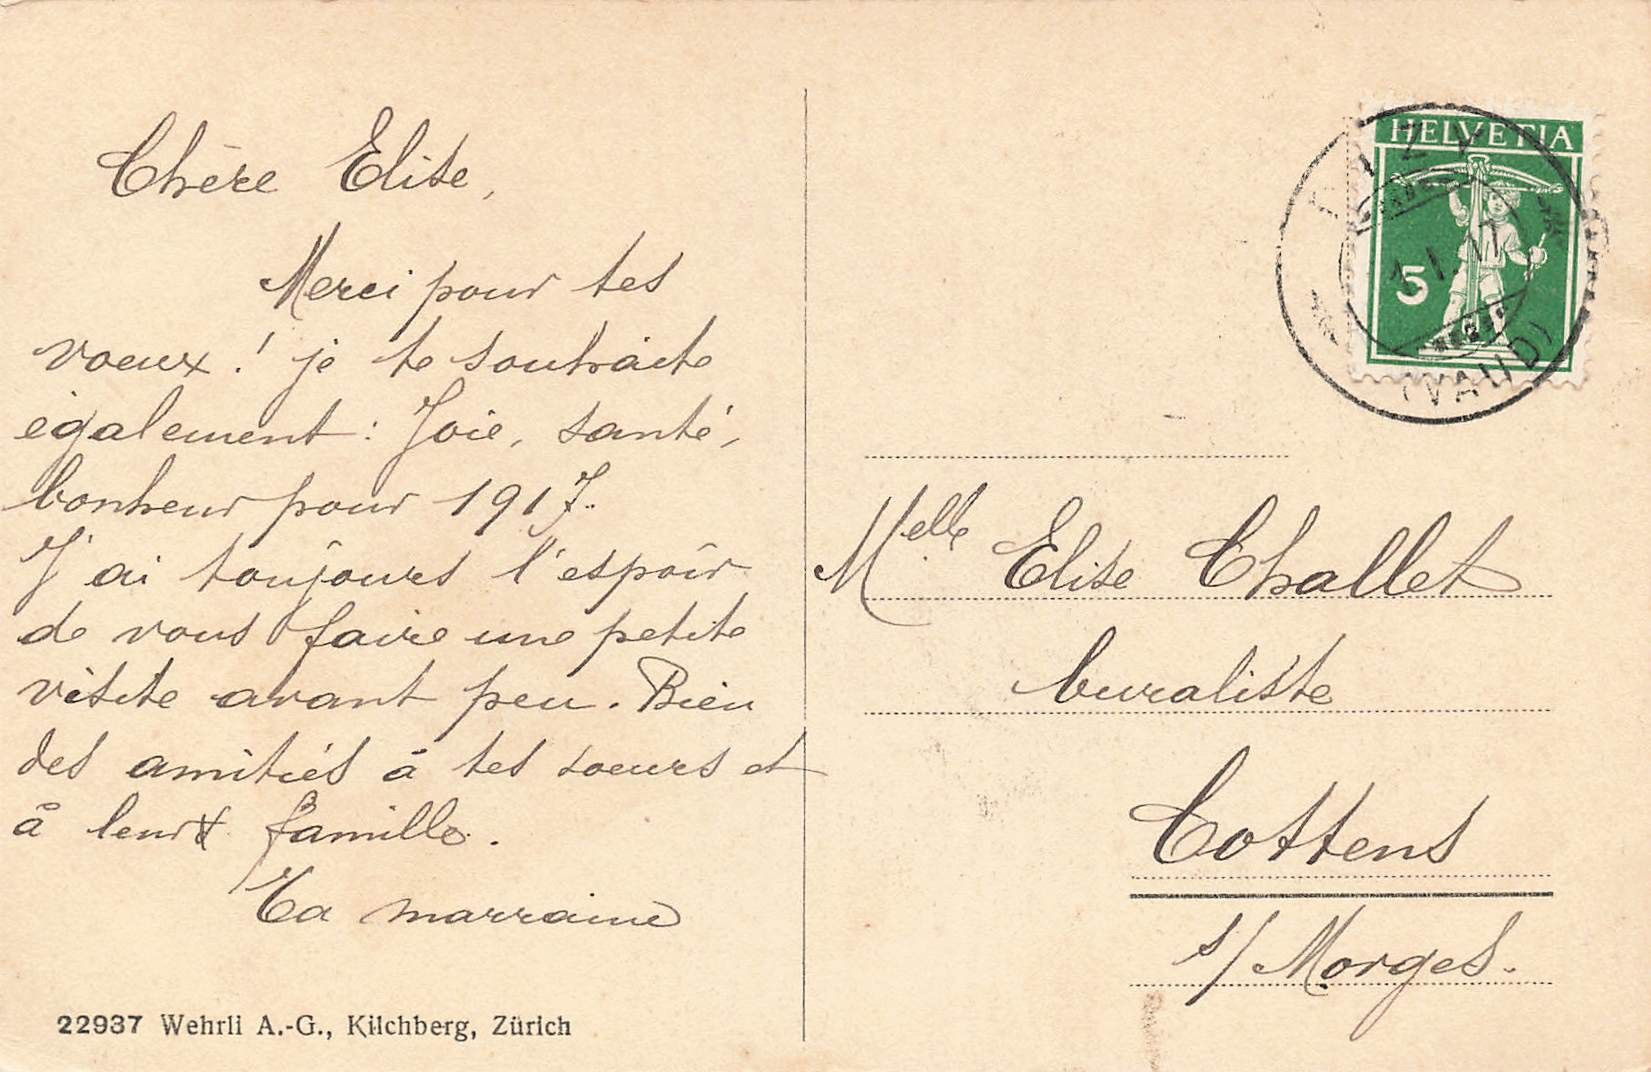 Chère Elise,
Merci pour tes
voeux! je te souhaite
également: Joie, santé,
bonheur pour 1917.
J'ai toujours l'espoir
de vous faire une petite
visite avant peu. Bien
des amitiés à tes soeurs et
à leur famille.
Ta marraine
22937 Wehrli A.-G., Kilchberg, Zürich
HELVETIA
5
1.I.17
(VAUD)
Melle Elise Challet
buraliste
Cottens
s/Morges.